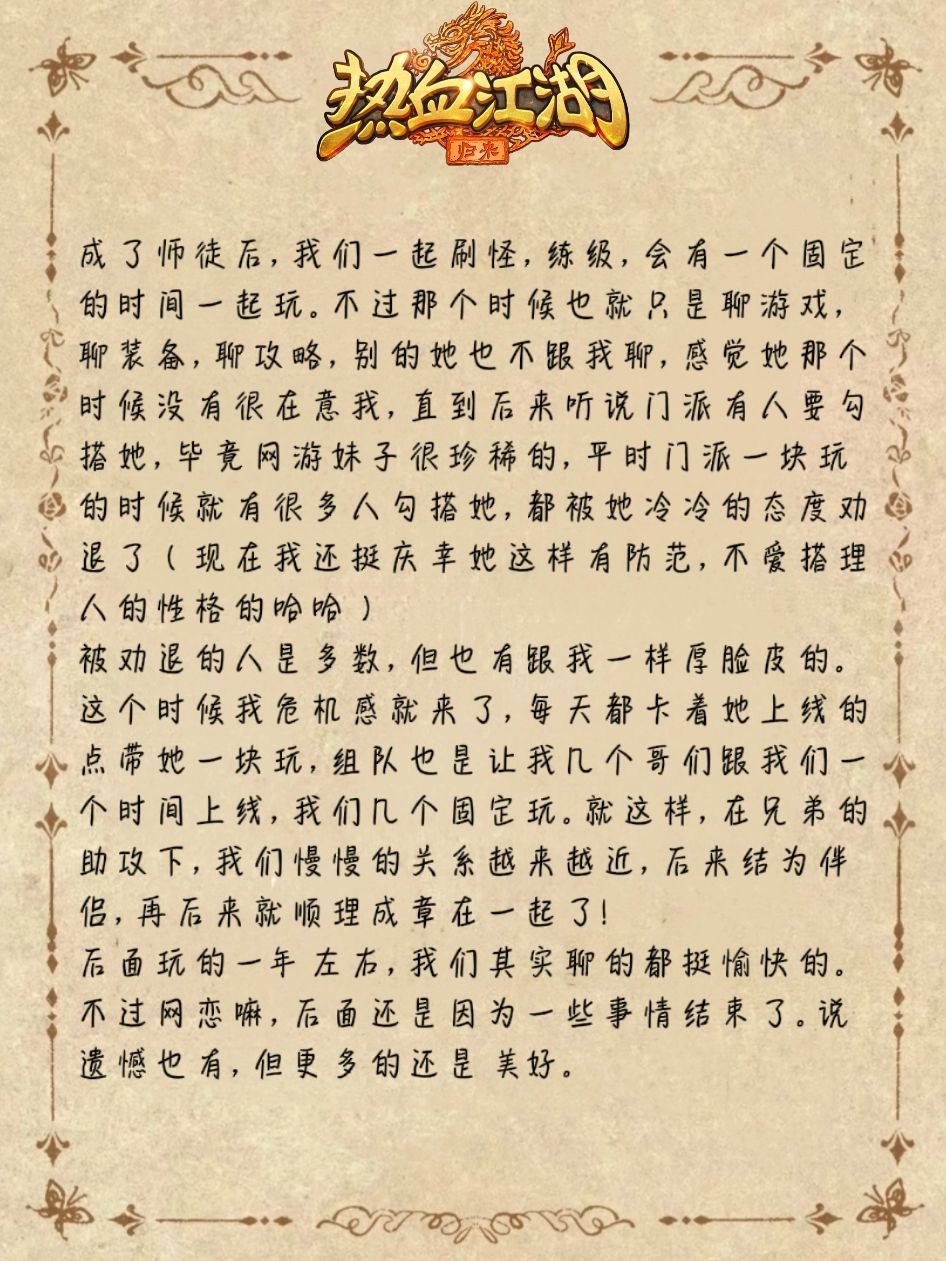 热血江湖
归来
成了师徒后，我们一起刷怪，练级，会有一个固定
的时间一起玩。不过那个时候也就只是聊游戏，
聊装备，聊攻略，别的她也不跟我聊，感觉她那个
时候没有很在意我，直到后来听说门派有人要勾
搭她，毕竟网游妹子很珍稀的，平时门派一块玩
的时候就有很多人勾搭她，都被她冷冷的态度劝
退了（现在我还挺庆幸她这样有防范，不爱搭理
人的性格的哈哈）
被劝退的人是多数，但也有跟我一样厚脸皮的。
这个时候我危机感就来了，每天都卡着她上线的
点带她一块玩，组队也是让我几个哥们跟我们一
个时间上线，我们几个固定玩。就这样，在兄弟的
助攻下，我们慢慢的关系越来越近，后来结为伴
侣，再后来就顺理成章在一起了！
后面玩的一年左右，我们其实聊的都挺愉快的。
不过网恋嘛，后面还是因为一些事情结束了。说
遗憾也有，但更多的还是美好。